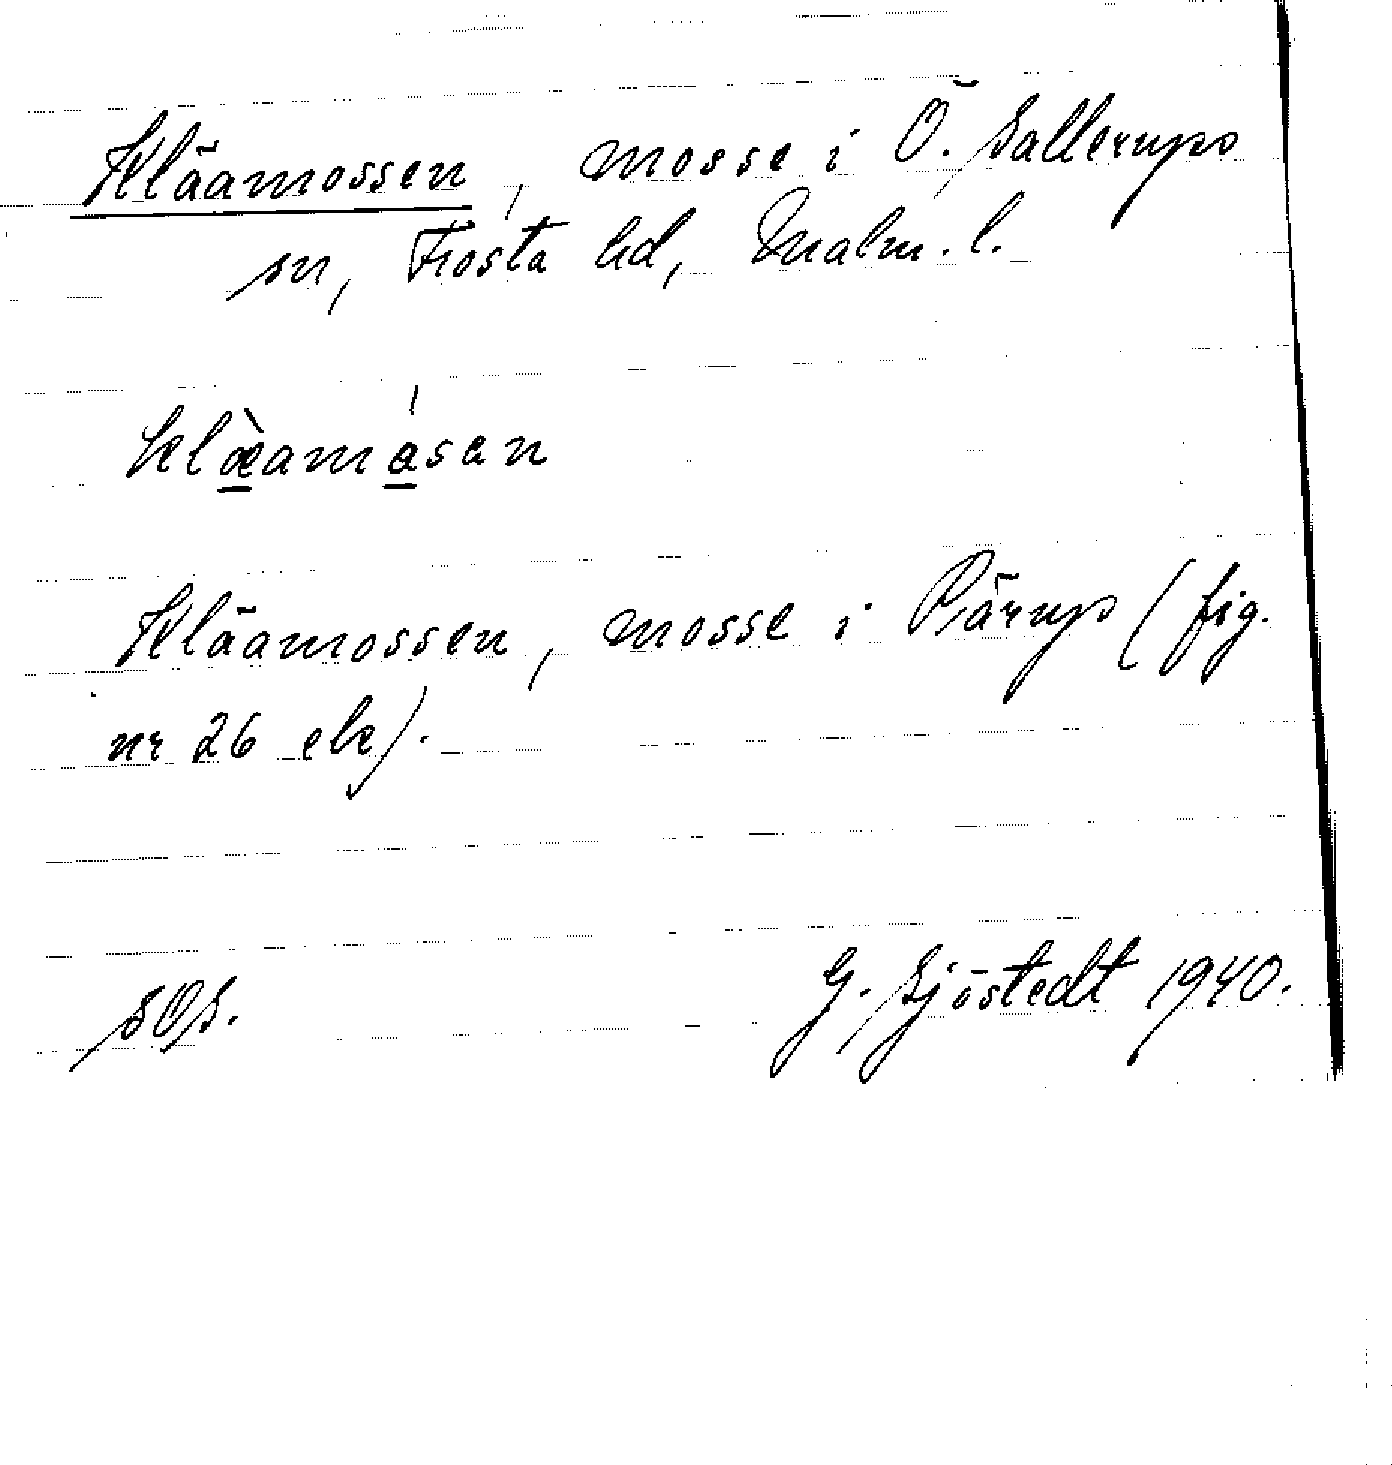 Kläamossen, mosse i Ö. Sallerups
sn, Frosta hd, Malm. l.
klæ̀amásan
Kläamossen, mosse i Pärup (fig.
nr 26 ek).
SOS.
G. Sjöstedt 1940.